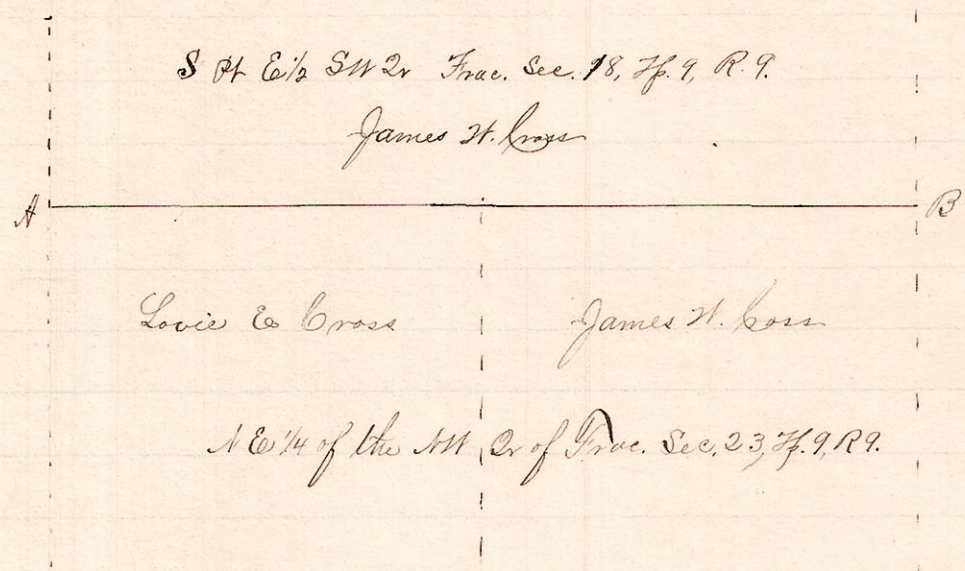 S Pt E 1/2 SW Qr Frac. Sec. 18, Tp. 9, R. 9.
James W. Cross
A B
Lovie E Cross James W. Coss
NE 1/4 of the NW Qr of Frac. Sec, 23, Tp. 9, R 9.